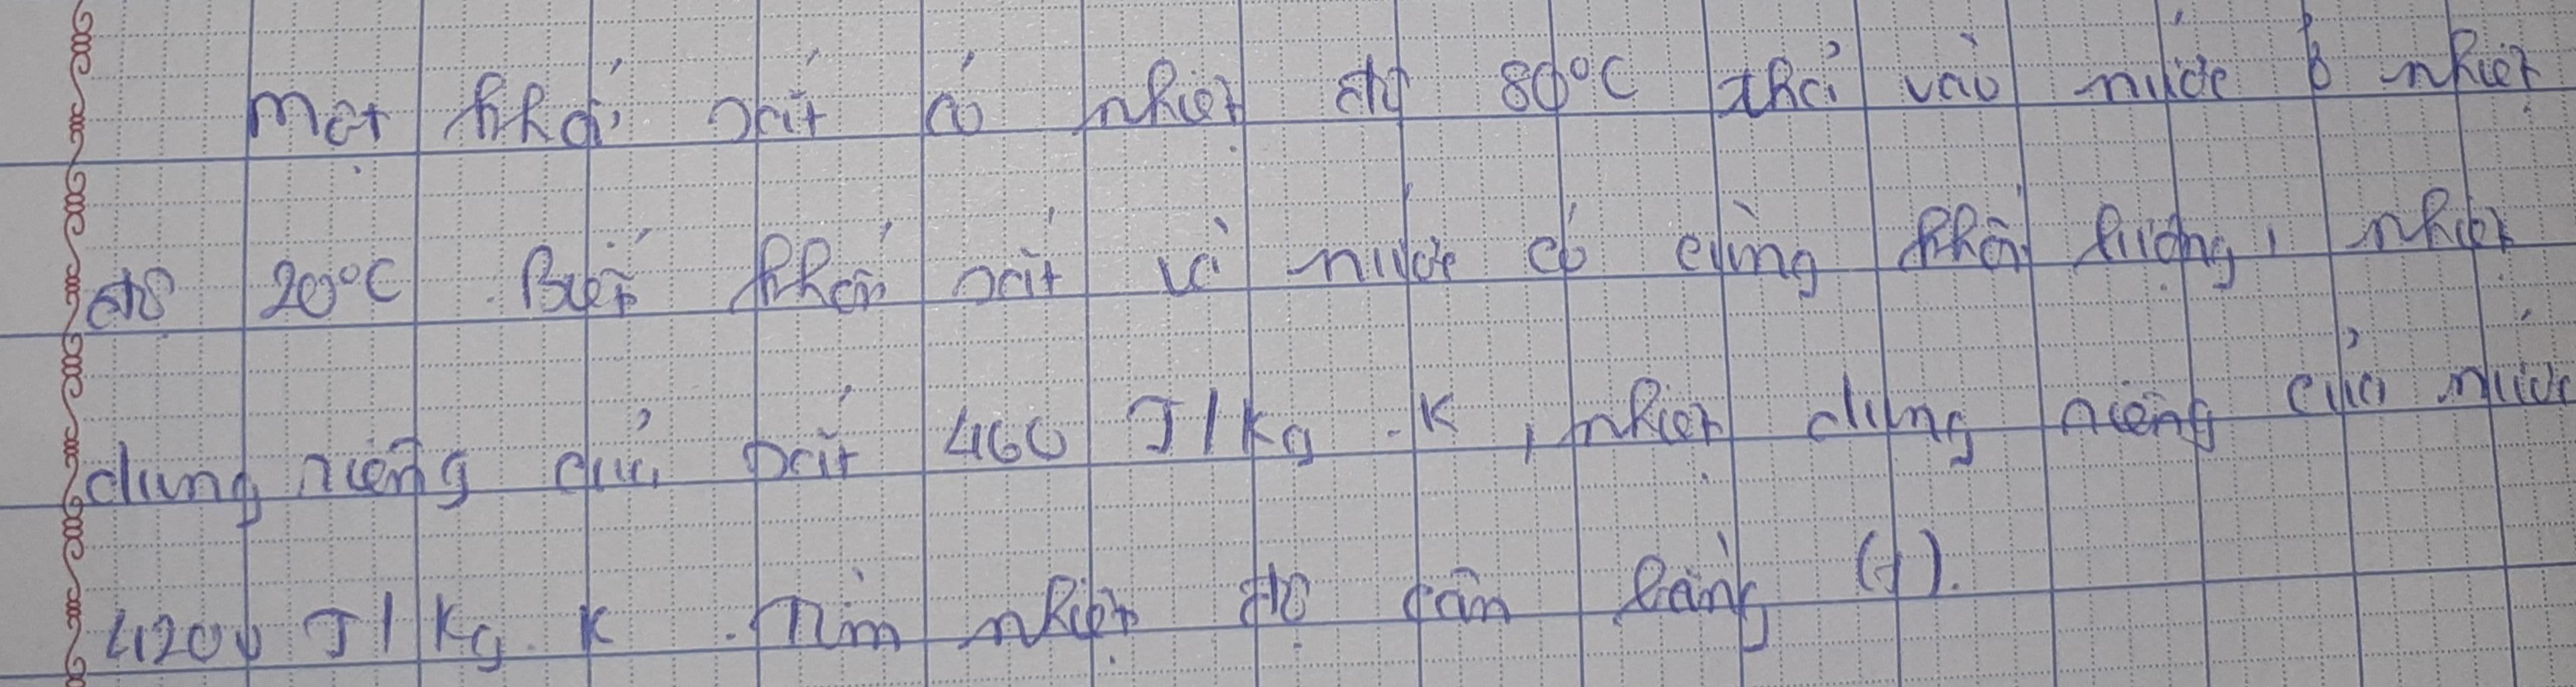 Một khối sắt có nhiệt độ 80°C thả vào nước ở nhiệt
độ 20°C. Biết khối sắt và nước có cùng khối lượng, nhiệt
dung riêng của sắt 460 J/kg.K, nhiệt dung riêng của nước
4200 J/kg.K. Tìm nhiệt độ cân bằng (t).